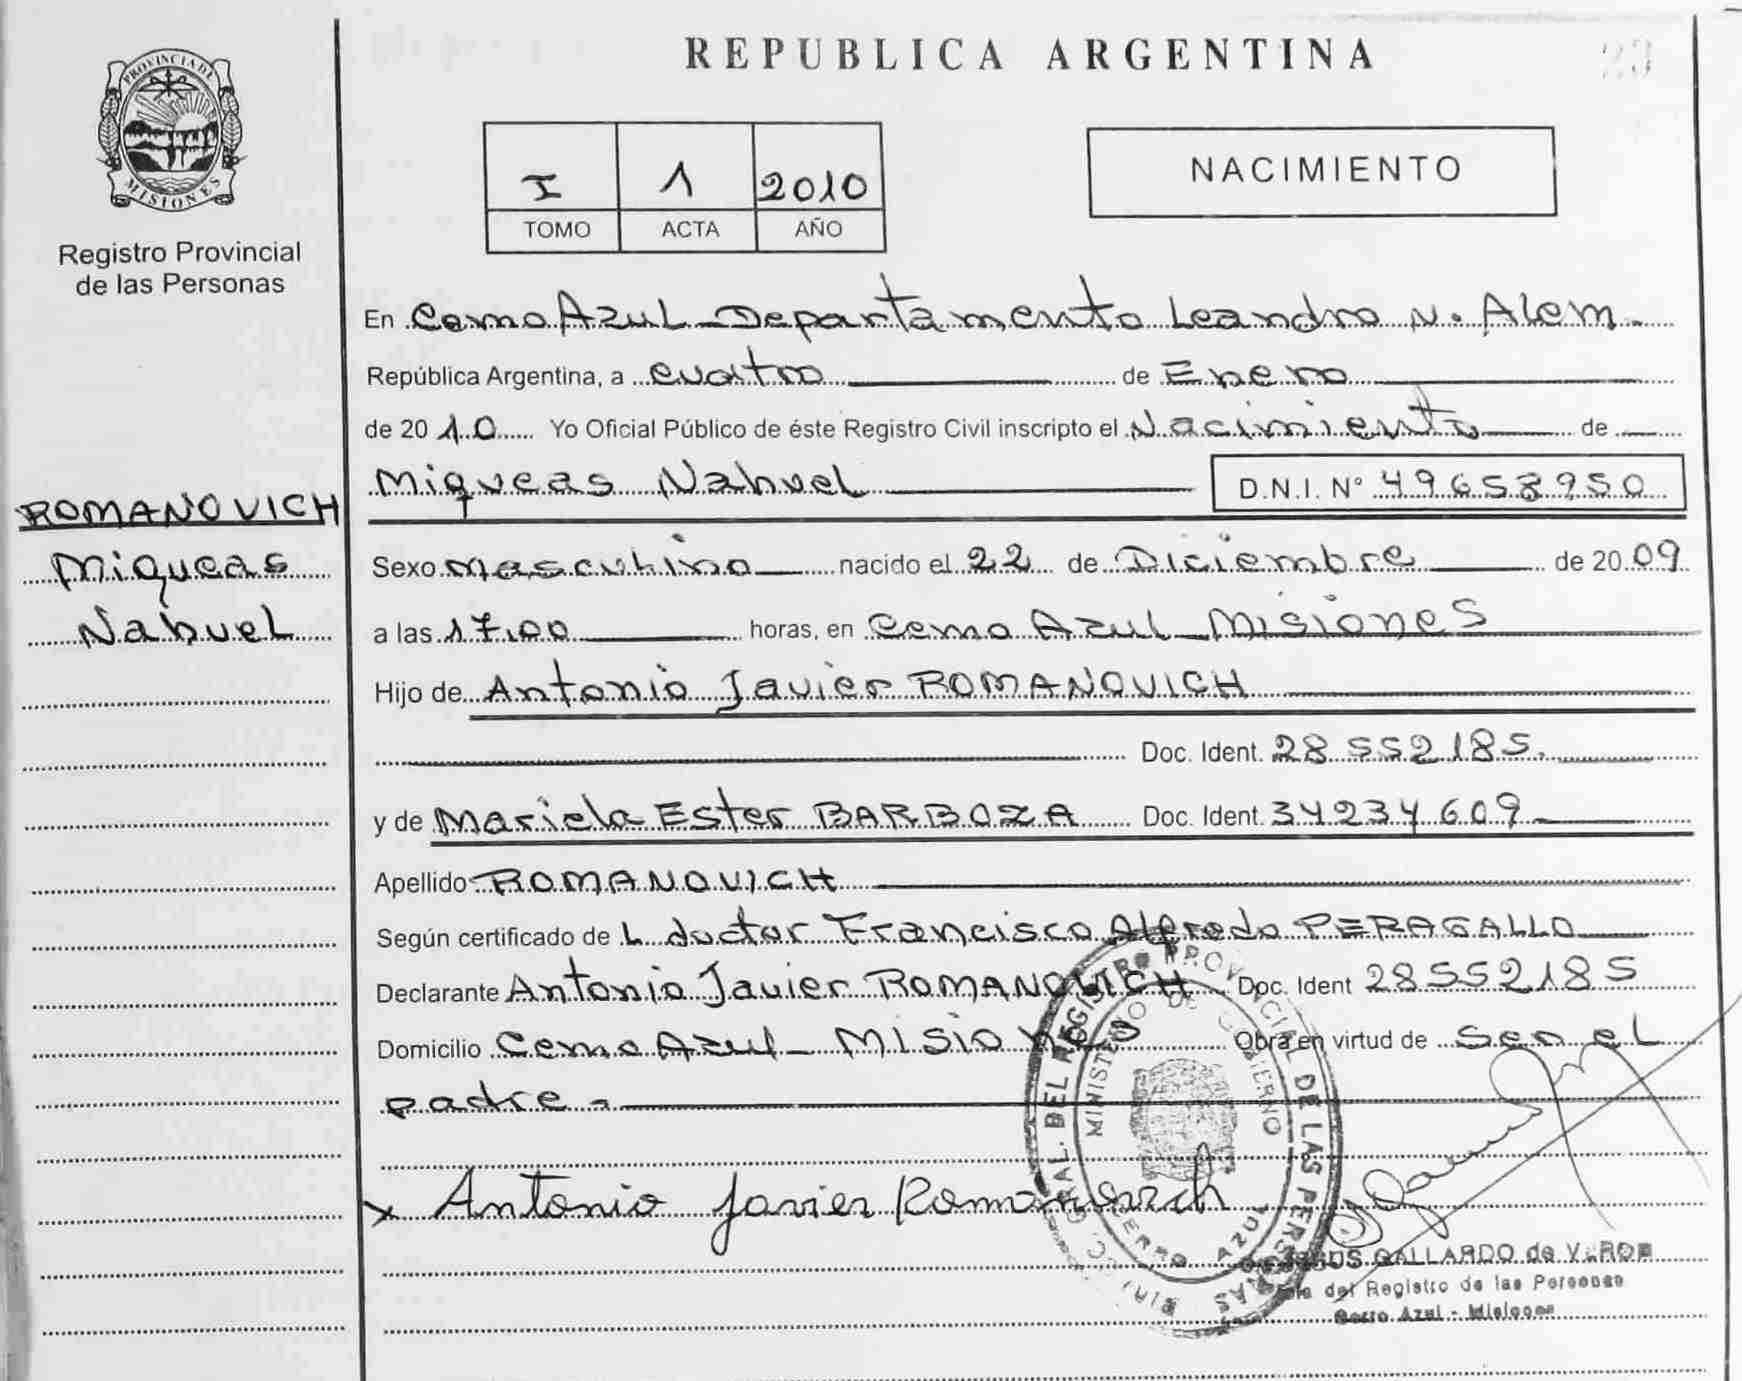 PROVINCIA DE
MISIONES
Registro Provincial
de las Personas
ROMANOVICH
Miqueas
Nahuel
REPUBLICA ARGENTINA
23
I 1 2010
TOMO ACTA AÑO
NACIMIENTO
En Cerro Azul - Departamento Leandro N. Alem -
República Argentina, a cuatro de Enero
de 2010 Yo Oficial Público de éste Registro Civil inscripto el Nacimiento de
Miqueas Nahuel D.N.I. N° 49658950
Sexo Masculino nacido el 22 de Diciembre de 2009
a las 17,00 horas, en Cerro Azul - Misiones
Hijo de Antonio Javier ROMANOVICH
Doc. Ident. 28552185.
y de Mariela Ester BARBOZA Doc. Ident. 34234609
Apellido ROMANOVICH
Según certificado de L doctor Francisco Alfredo PERAGALLO
Declarante Antonio Javier ROMANOVICH Doc. Ident 28552185
Domicilio Cerro Azul - Misiones Obra en virtud de ser el
padre -
x Antonio Javier Romanovich
DEL REGISTRO PROVINCIAL DE LAS PERSONAS
MINISTERIO DE GOBIERNO
CERRO AZUL
GALLARDO de
del Registro de las Personas
Cerro Azul - Misiones